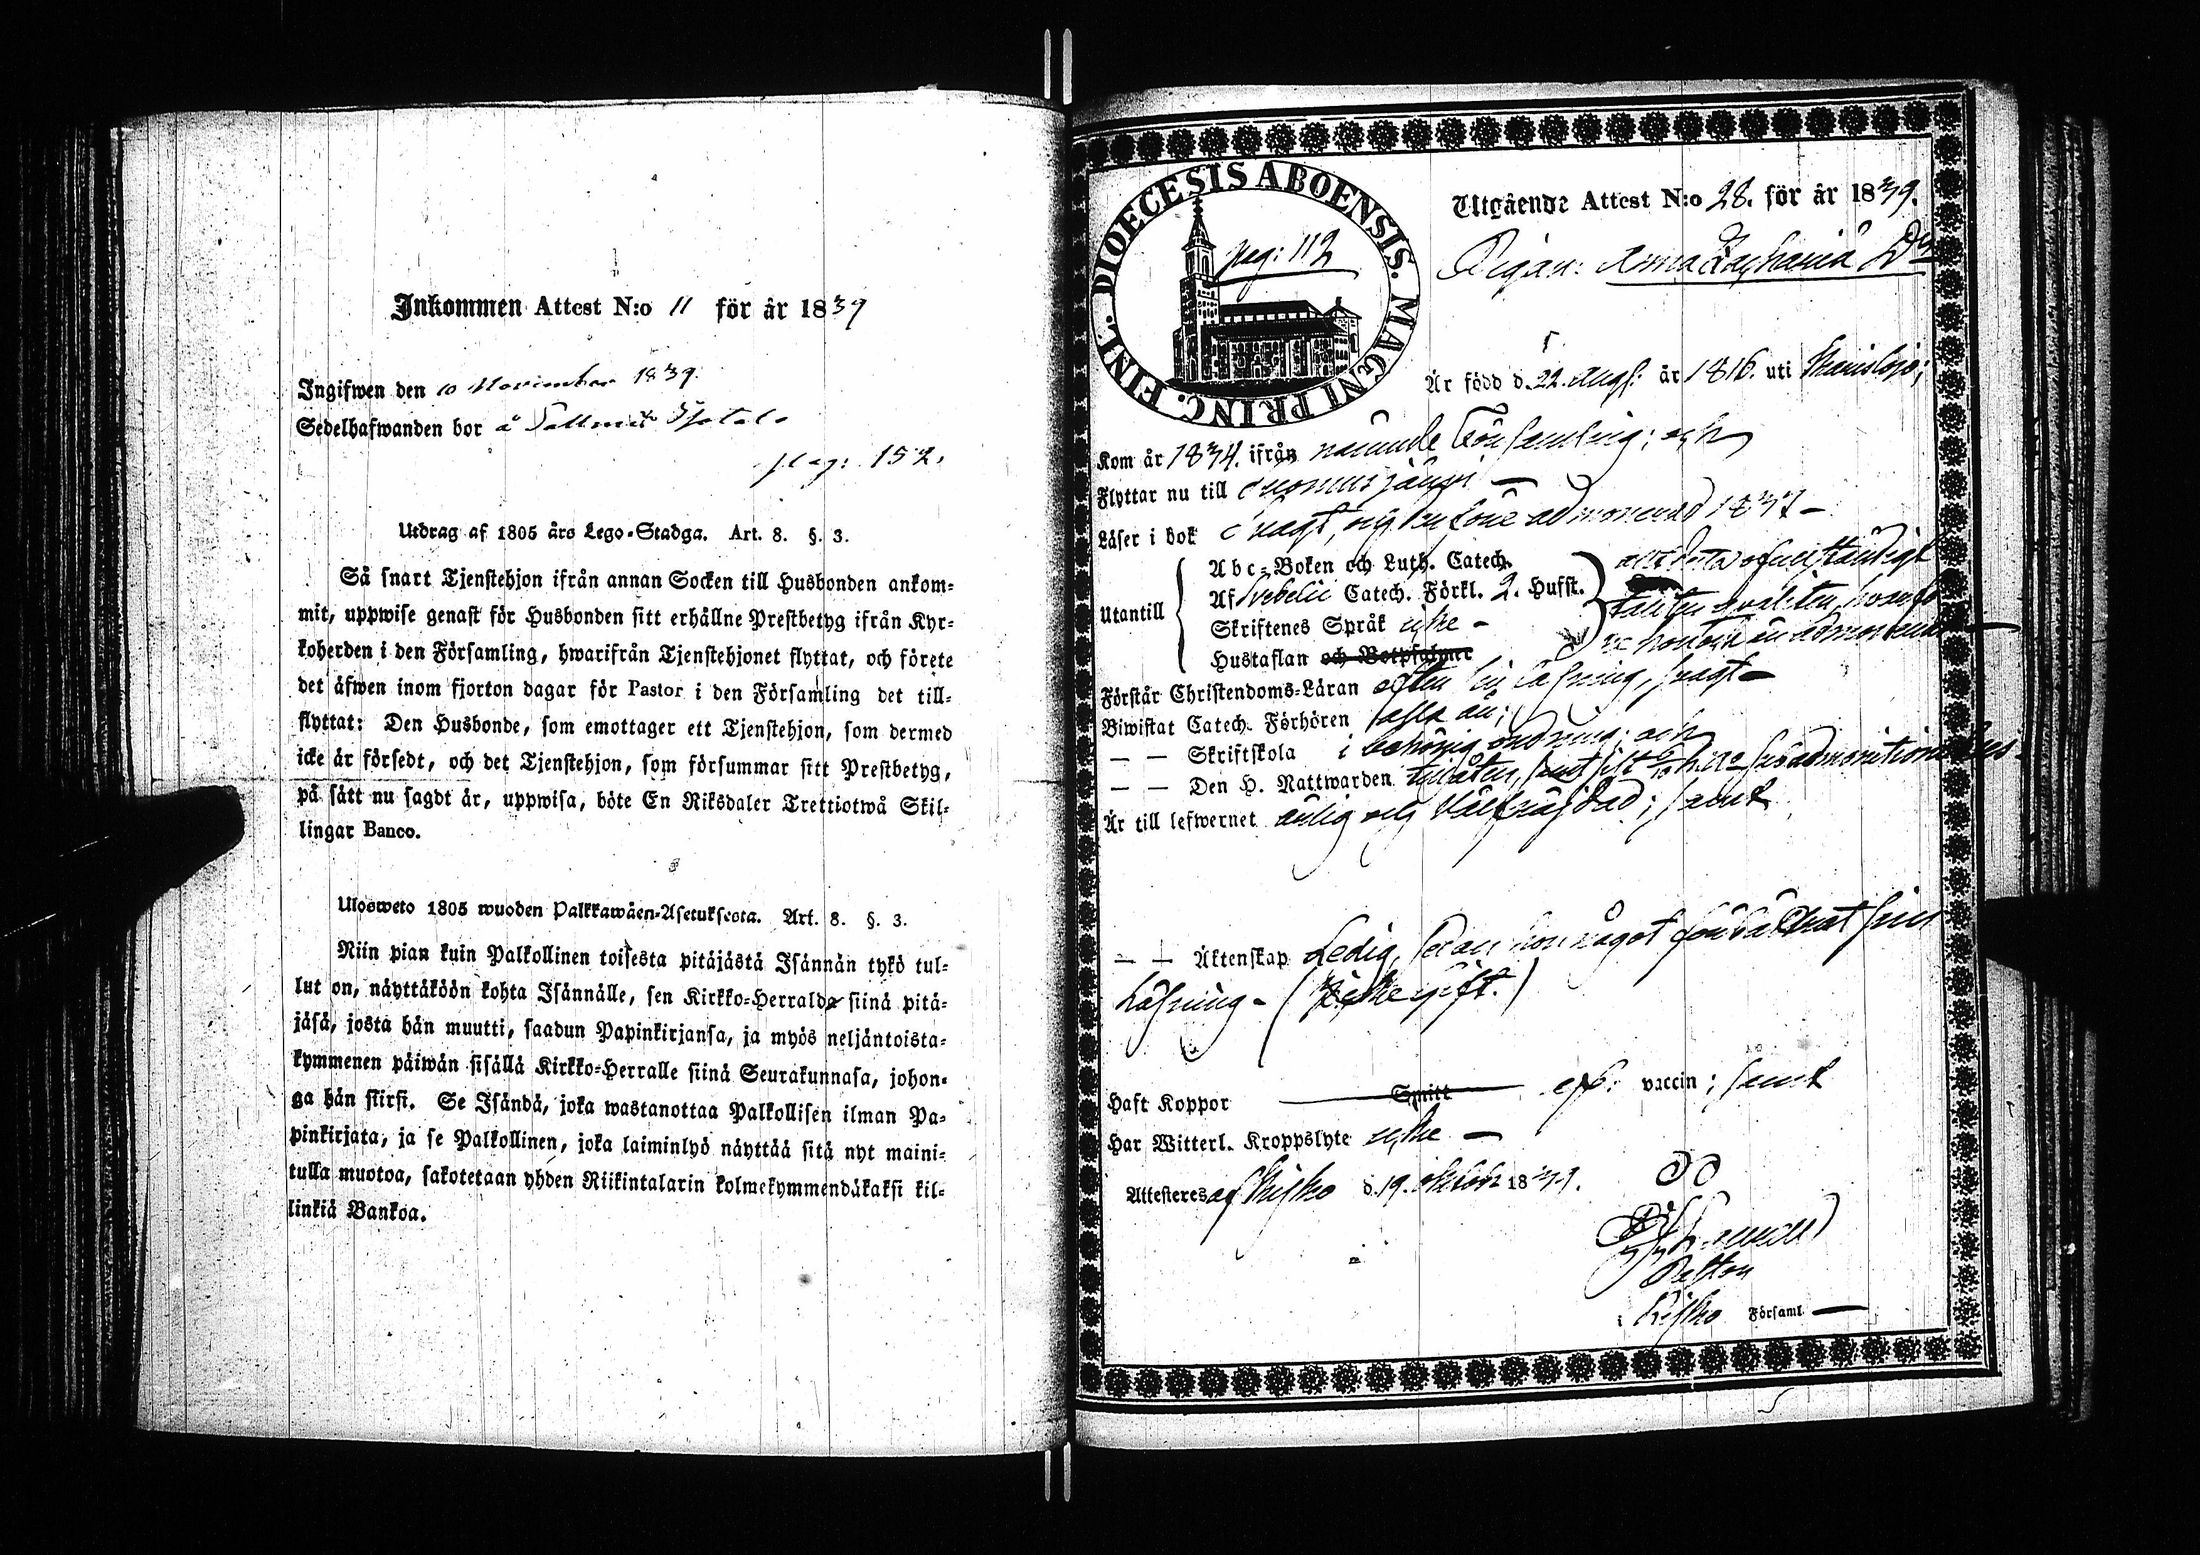 Inkommen Attest N:o 11 för år 1839
Ingifwen den 10 November 1839.
Sedelhafwanden bor å
pag: 152.
Utdrag af 1805 års Lego-Stadga. Art. 8. §. 3.
Så snart Tjenstehjon ifrån annan Socken till Husbonden ankom-
mit, uppwise genast för Husbonden sitt erhållne Prestbetyg ifrån Kyr-
koherden i den Församling, hwarifrån Tjenstehjonet flyttat, och förete
det äfwen inom fjorton dagar för Pastor i den Församling det till-
flyttat: Den Husbonde, som emottager ett Tjenstehjon, som dermed
icke är försedt, och det Tjenstehjon, som försummar sitt Prestbetyg,
på sätt nu sagdt är, uppwisa, böte En Riksdaler Trettiotwå Skil-
lingar Banco.
Ulosweto 1805 wuoden Palkkawäen-Asetuksesta. Art. 8. §. 3.
Niin pian kuin Palkollinen toisesta pitäjästä Isännän tykö tul-
lut on, näyttäköön kohta Isännälle, sen Kirkko-Herralda siinä pitä-
jäsä, josta hän muutti, saadun Papinkirjansa, ja myös neljäntoista-
kymmenen päiwän sisällä Kirkko-Herralle siinä Seurakunnasa, johon-
ga hän siirsi. Se Isändä, joka wastanottaa Palkollisen ilman Pa-
pinkirjata, ja se Palkollinen, joka laiminlyö näyttää sitä nyt maini-
tulla muotoa, sakotetaan yhden Riikintalarin kolmekymmendäkaksi kil-
linkiä Bankoa.
DIOECESIS ABOENSIS. MAGNI PRINC. FINL.
pag: 112
Utgående Attest N:o 28. för år 1839.
Pigan: Anna Zachariæ Dr
Är född d. 22. Aug: år 1816. uti
Kom år 1834. ifrån nämnde Församling; och
Flyttar nu till Suomusjärvi —
Läser i bok svagt, 1837 —
Utantill
Abc-Boken och Luth. Catech.
Af Svebelii Catech. Förkl. 2. Hufst.
Skriftenes Språk icke —
Hustaflan och Botpsalmer
Förstår Christendoms-Läran efter sin läsning, svagt —
Biwistat Catech. Förhören
— — Skriftskola i behörig ordning; och
— — Den H. Nattwarden
Är till lefwernet ärlig och välfräjdad; samt
— — Äktenskap Ledig, sedan hon något förbättrat sin
läsning — (icke gift.)
Haft Koppor Smitt vaccin; samt
Har Witterl. Kroppslyte icke —
Attesteres af Kisko d. 19. oktob: 1839.
Pastor
i Kisko Församl. —